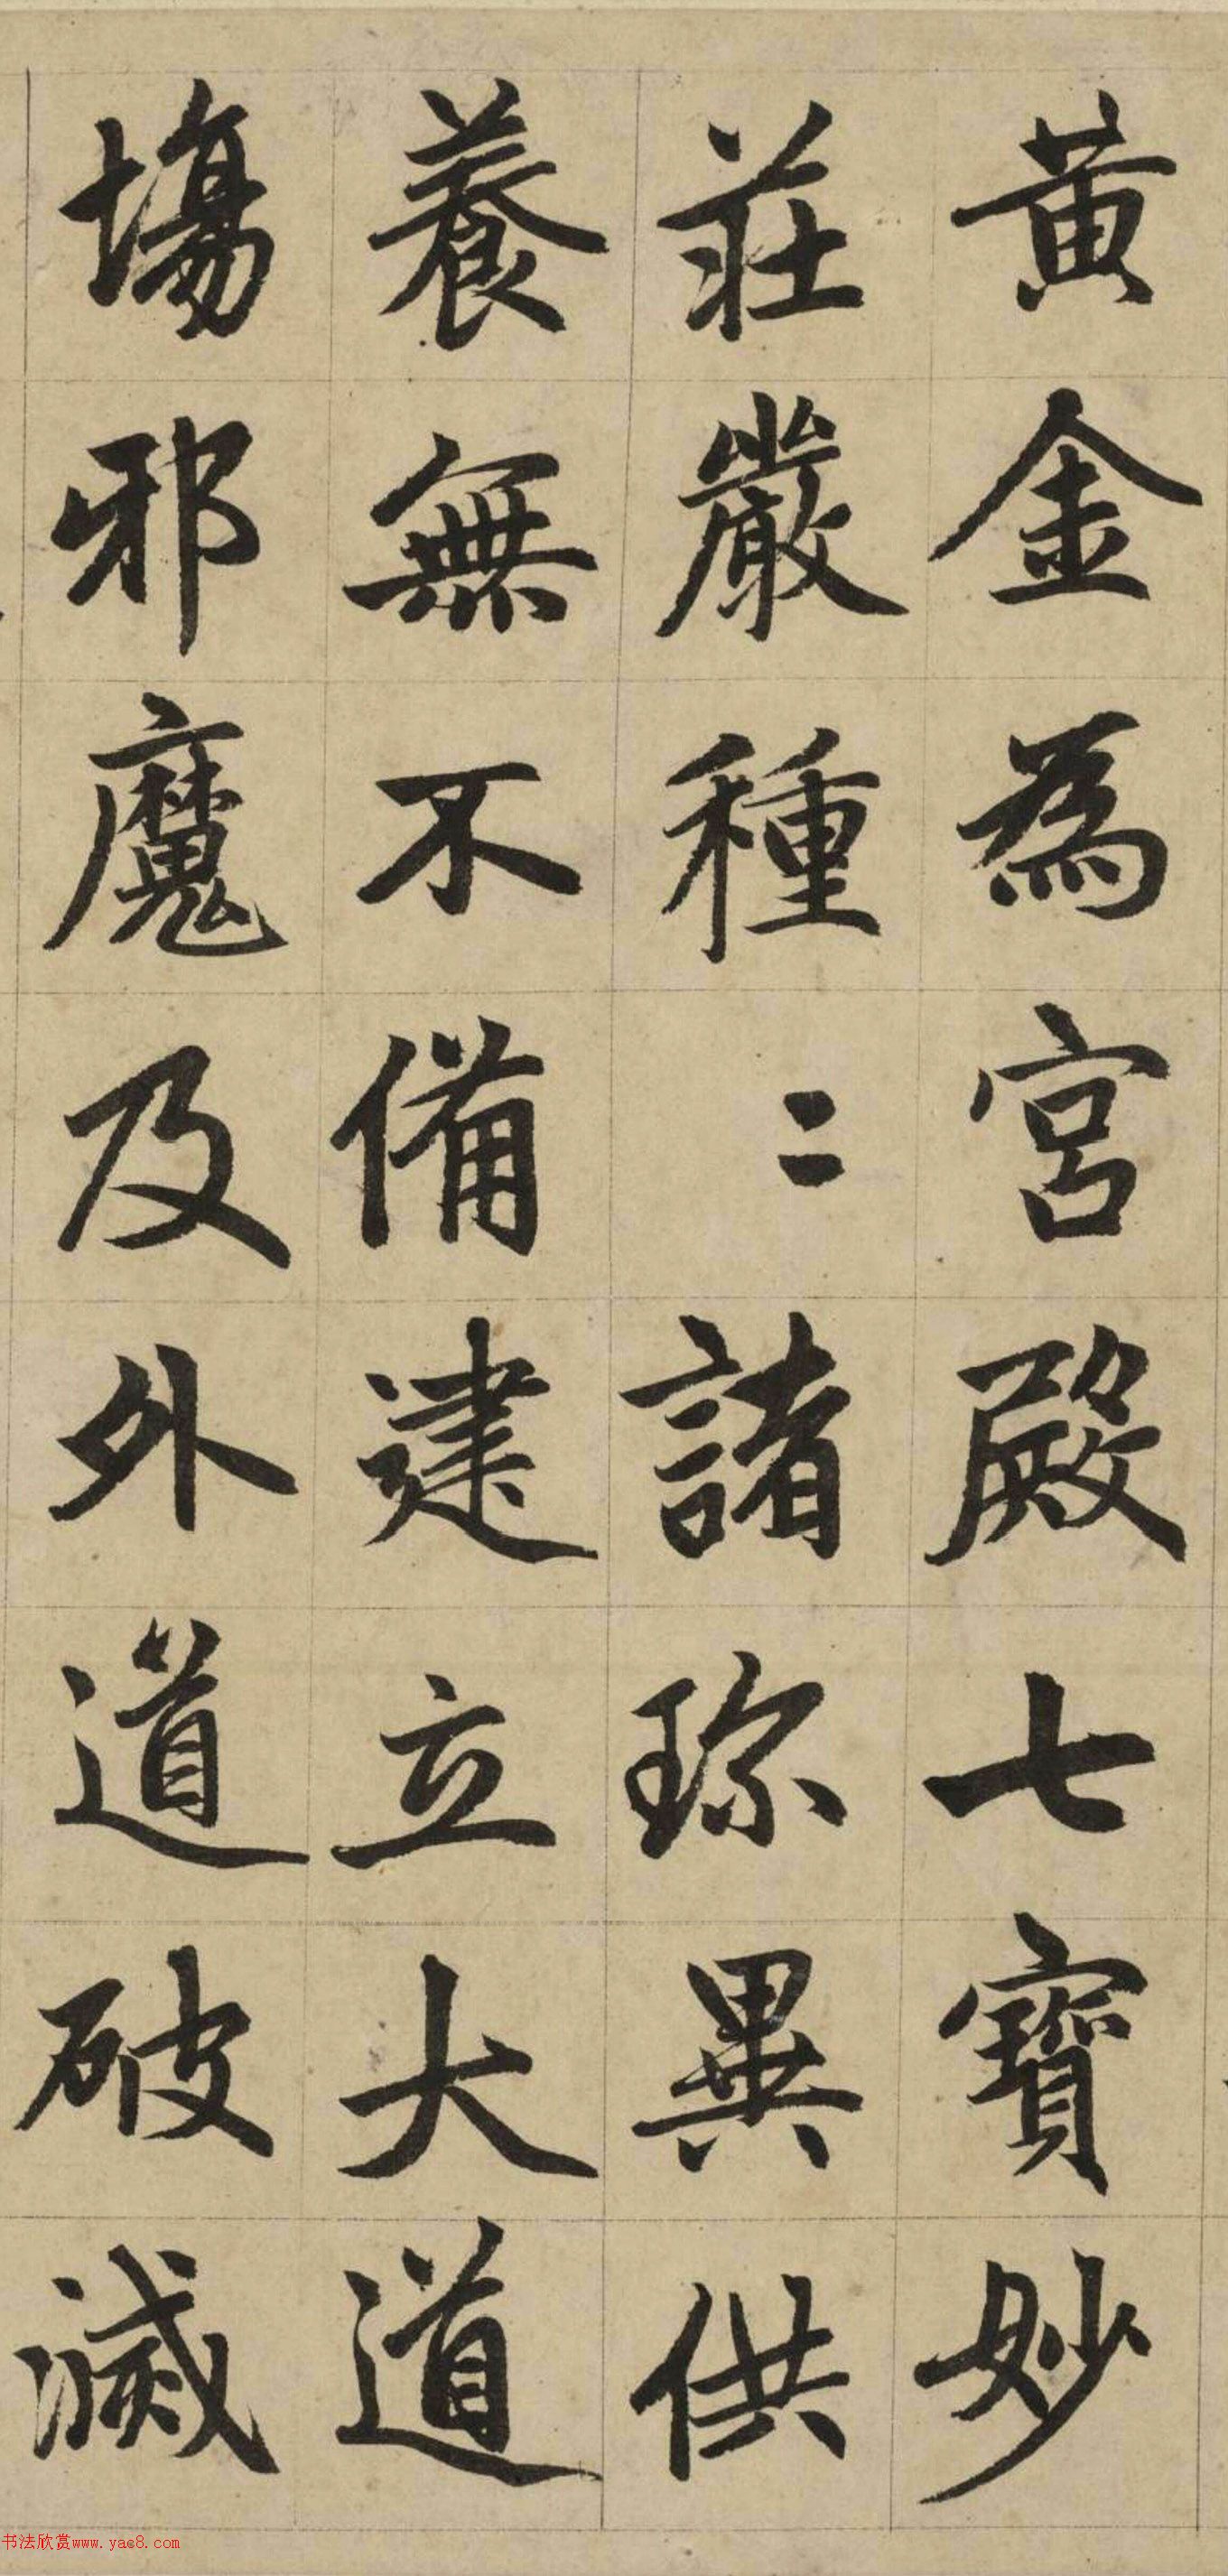 黄金為宮殿七寶妙
莊嚴種〻諸珎異供
養無不備建立大道
塲邪魔及外道破滅
书法欣赏www.yac8.com